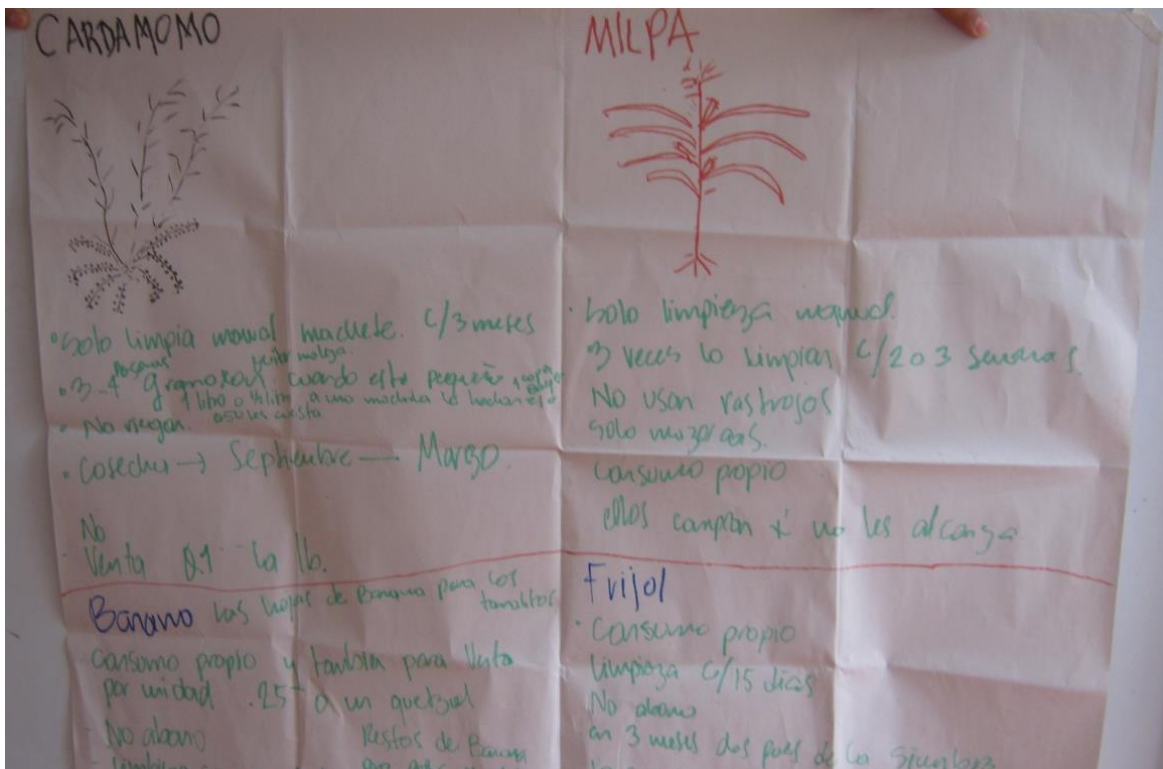 CARDAMOMO
• Solo limpia manual machete. c/3 meses
• 3-4 gramoxon, cuando esta pequeño
1 litro o ½ litro a una machida lo
Q50 les cuesta
• No riegan.
• Cosecha → Septiembre — Marzo.
No
Venta Q1 la lb.
Banano las hojas de Banano para los
tamalitos
consumo propio y tambien para Venta
por unidad .25 a un quetzal
No abono
Restos de Banano
MILPA
• Solo limpieza manual.
3 veces lo limpian c/2 o 3 semanas
No usan rastrojos
solo
consumo propio
ellos compran x' no les alcanza
Frijol
• Consumo propio
Limpieza c/15 dias
No abono
en 3 meses dos pues de la Siembra